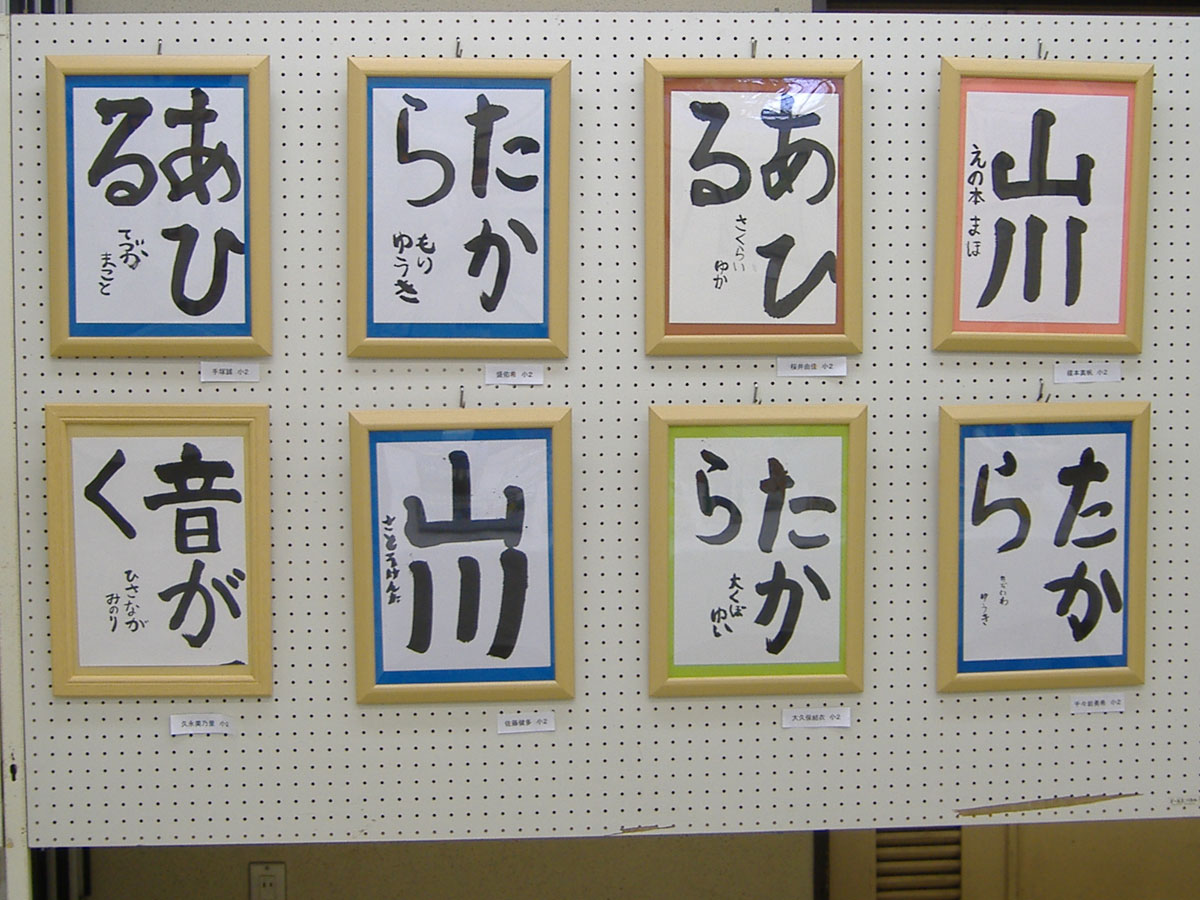 あひ
る
てづか
まこと
手塚誠 小2
たか
ら
もり
ゆうき
あひ
る
さくらい
ゆか
桜井由佳 小2
山川
えの本 まほ
榎本真帆 小2
音が
く
ひさなが
みのり
久永美乃里 小2
山川
さとうけんた
佐藤健多 小2
たか
ら
大くぼ
ゆい
大久保結衣 小2
たか
ら
ゆうき